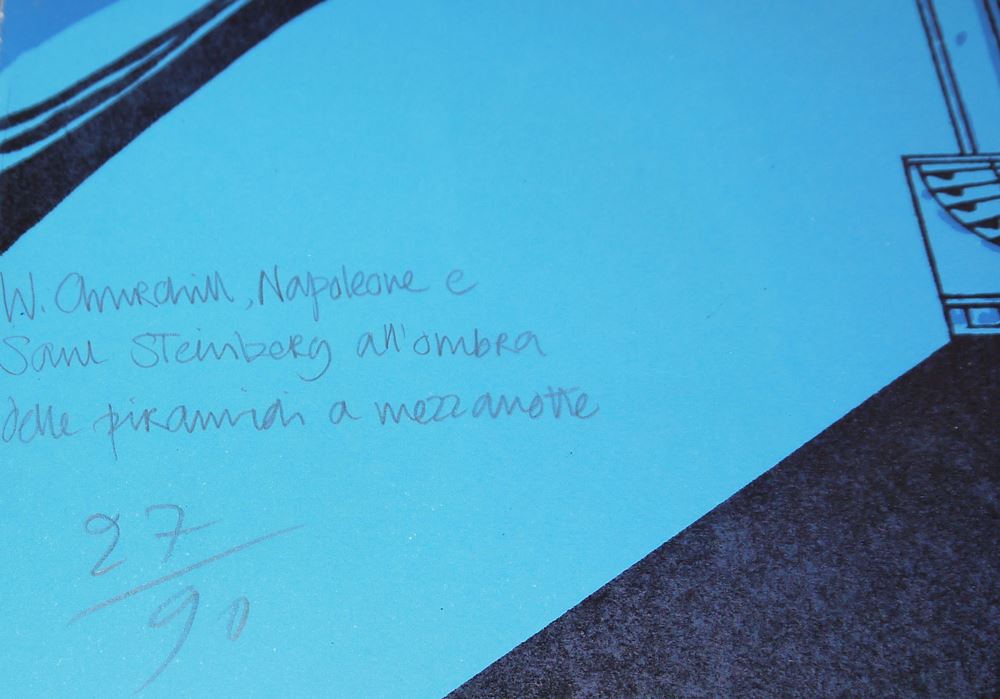 W. Churchill, Napoleone e
Saul Steinberg all'ombra
delle piramidi a mezzanotte
27
90